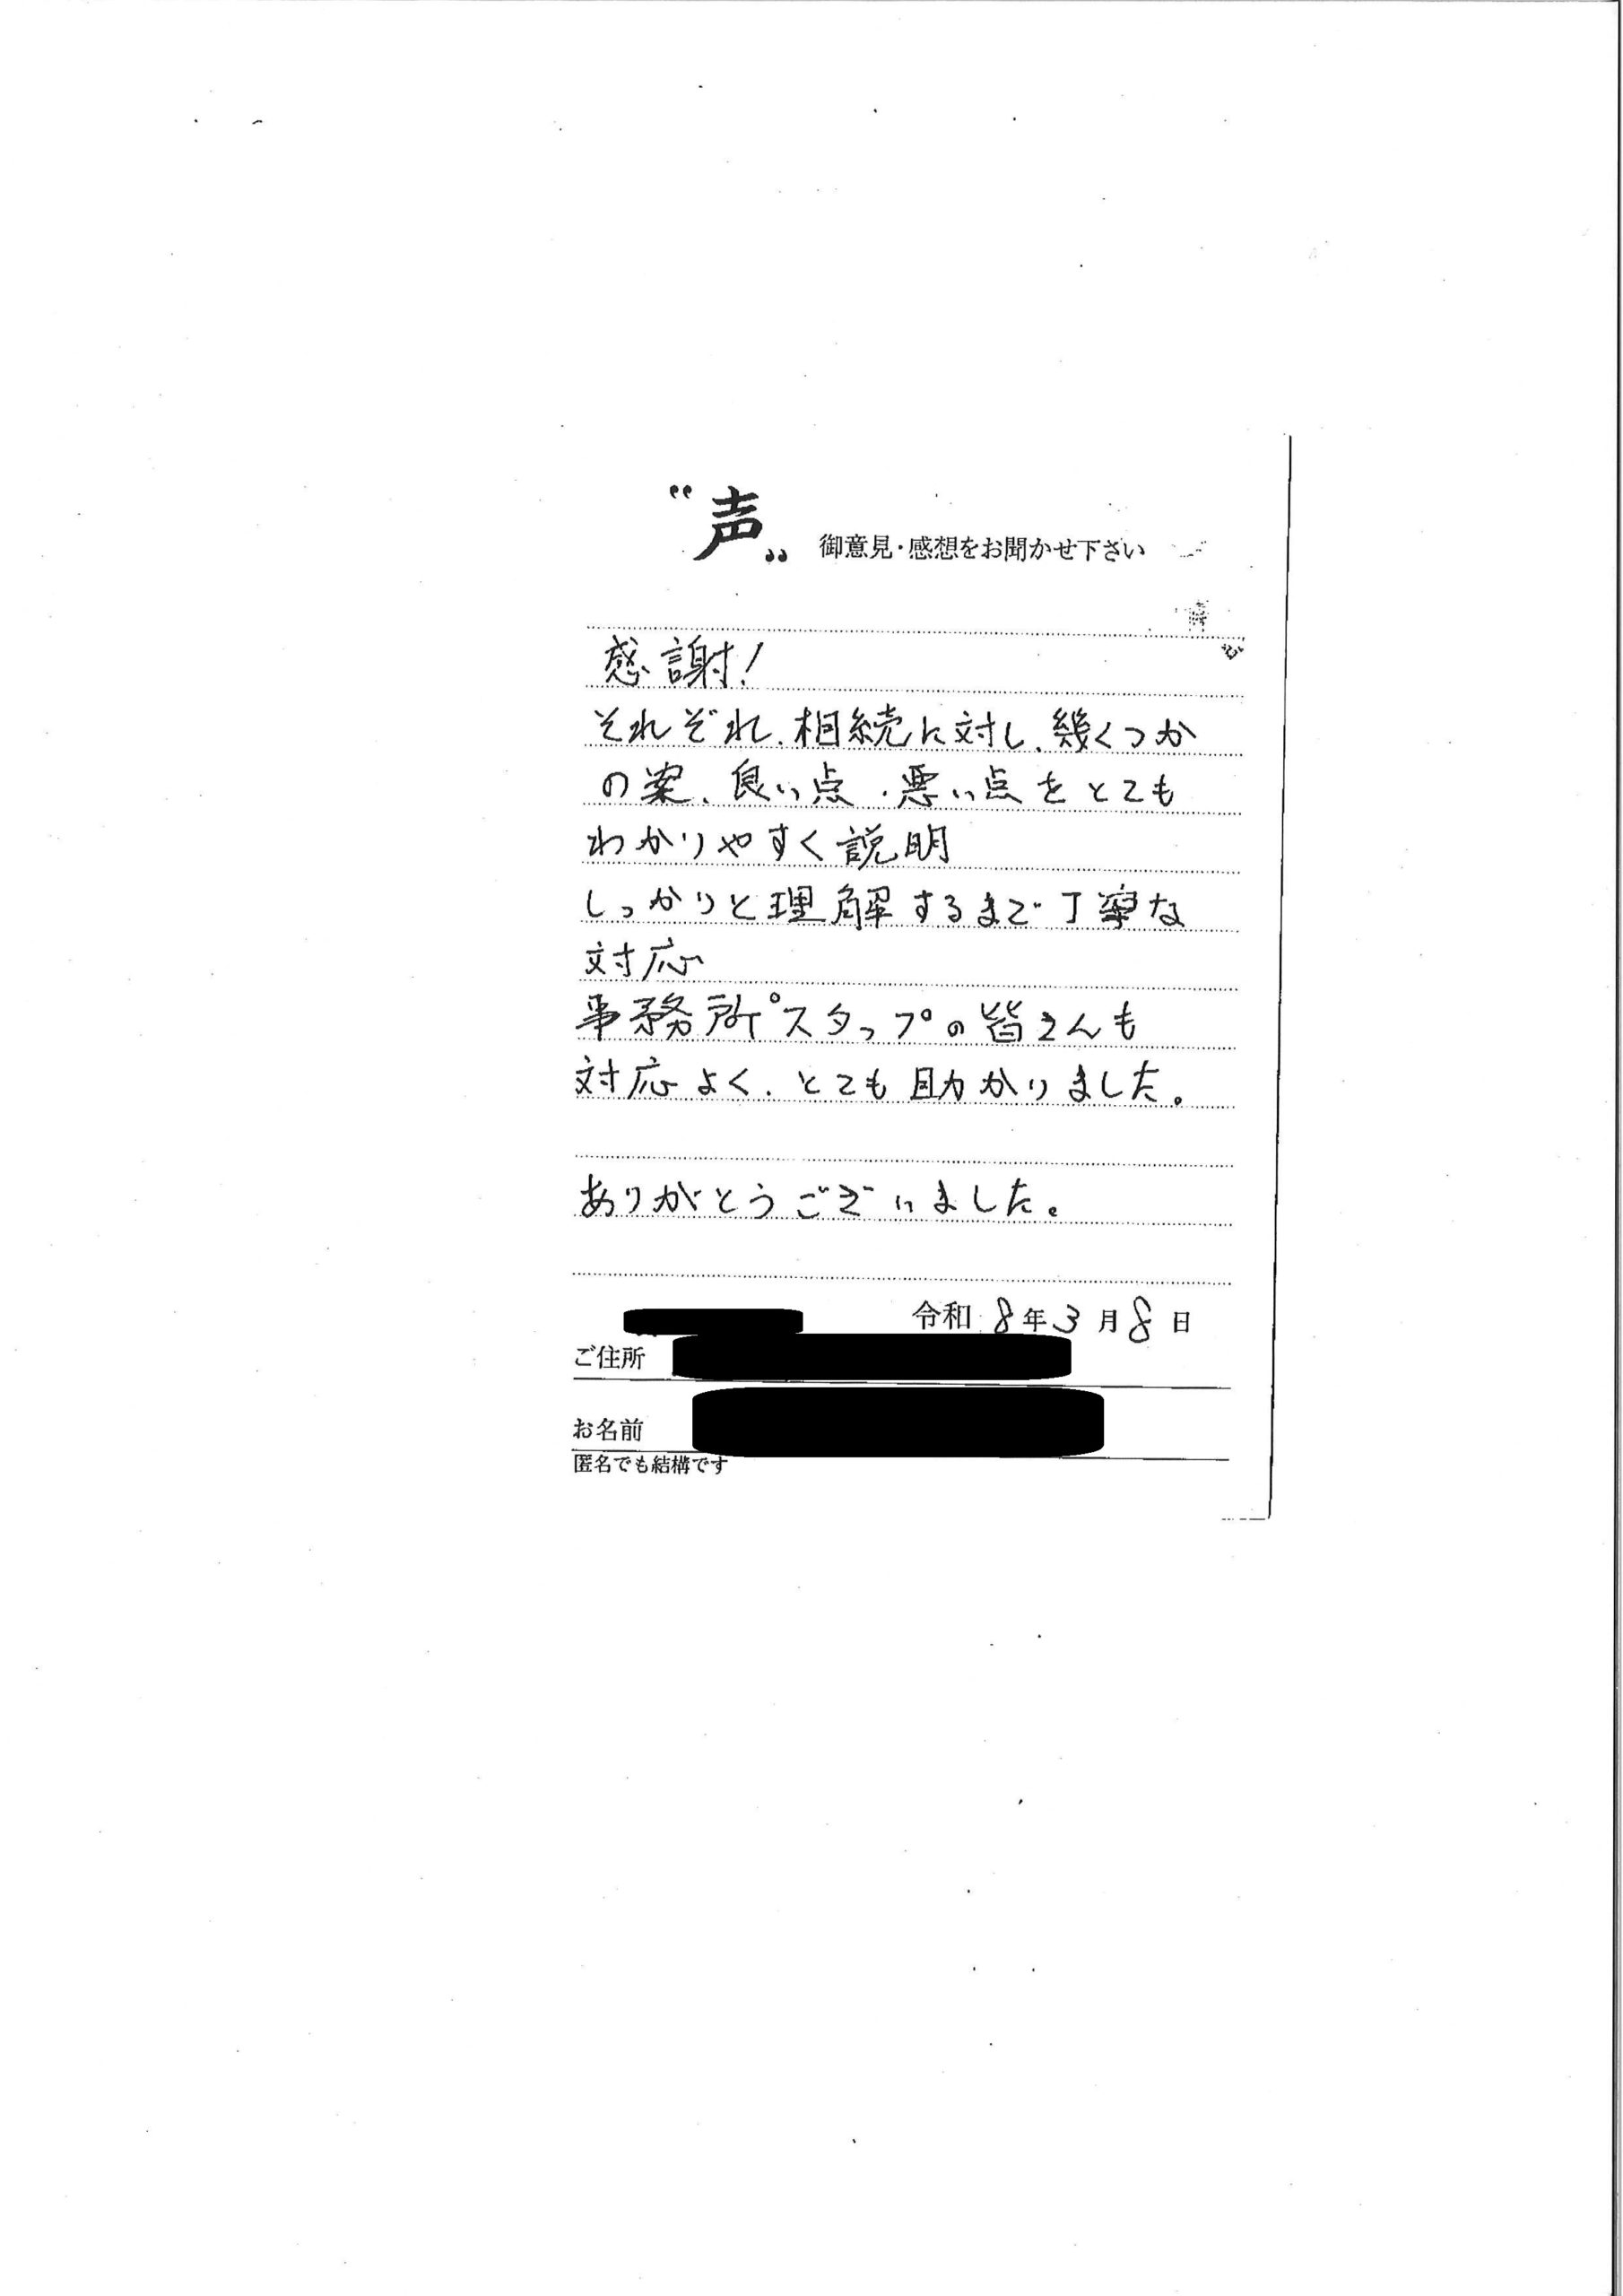 “声”
御意見・感想をお聞かせ下さい
感謝!
それぞれ、相続に対し、幾くつか
の案、良い点・悪い点をとても
わかりやすく説明
しっかりと理解するまで丁寧な
対応
事務所スタップの皆さんも
対応よく、とても助かりました。
ありがとうございました。
令和 8年3月8日
ご住所
お名前
匿名でも結構です